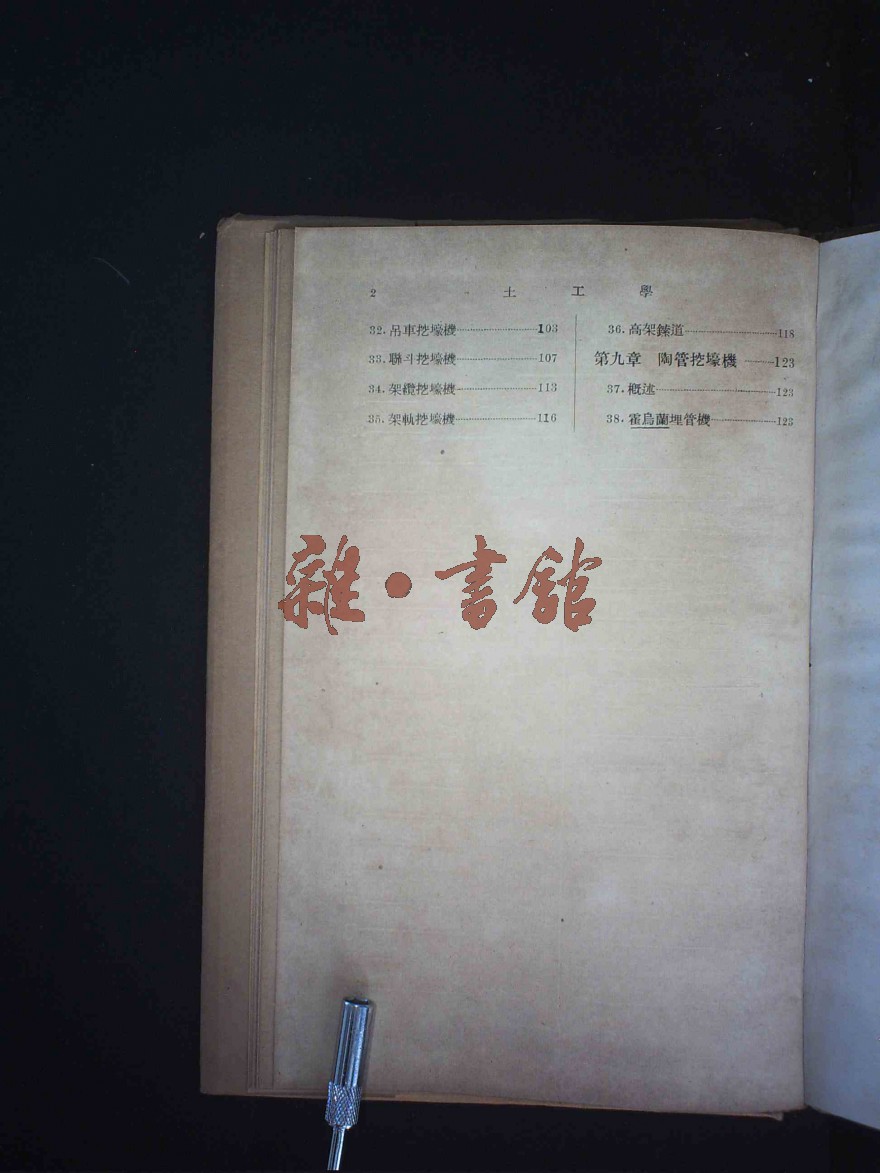 2 土工學
32. 吊車挖壕機 103
33. 聯斗挖壕機 107
34. 架纜挖壕機 113
35. 架軌挖壕機 116
36. 高架鍊道 118
第九章 陶管挖壕機 123
37. 概述 123
38. 霍烏蘭埋管機 123
雜·書館